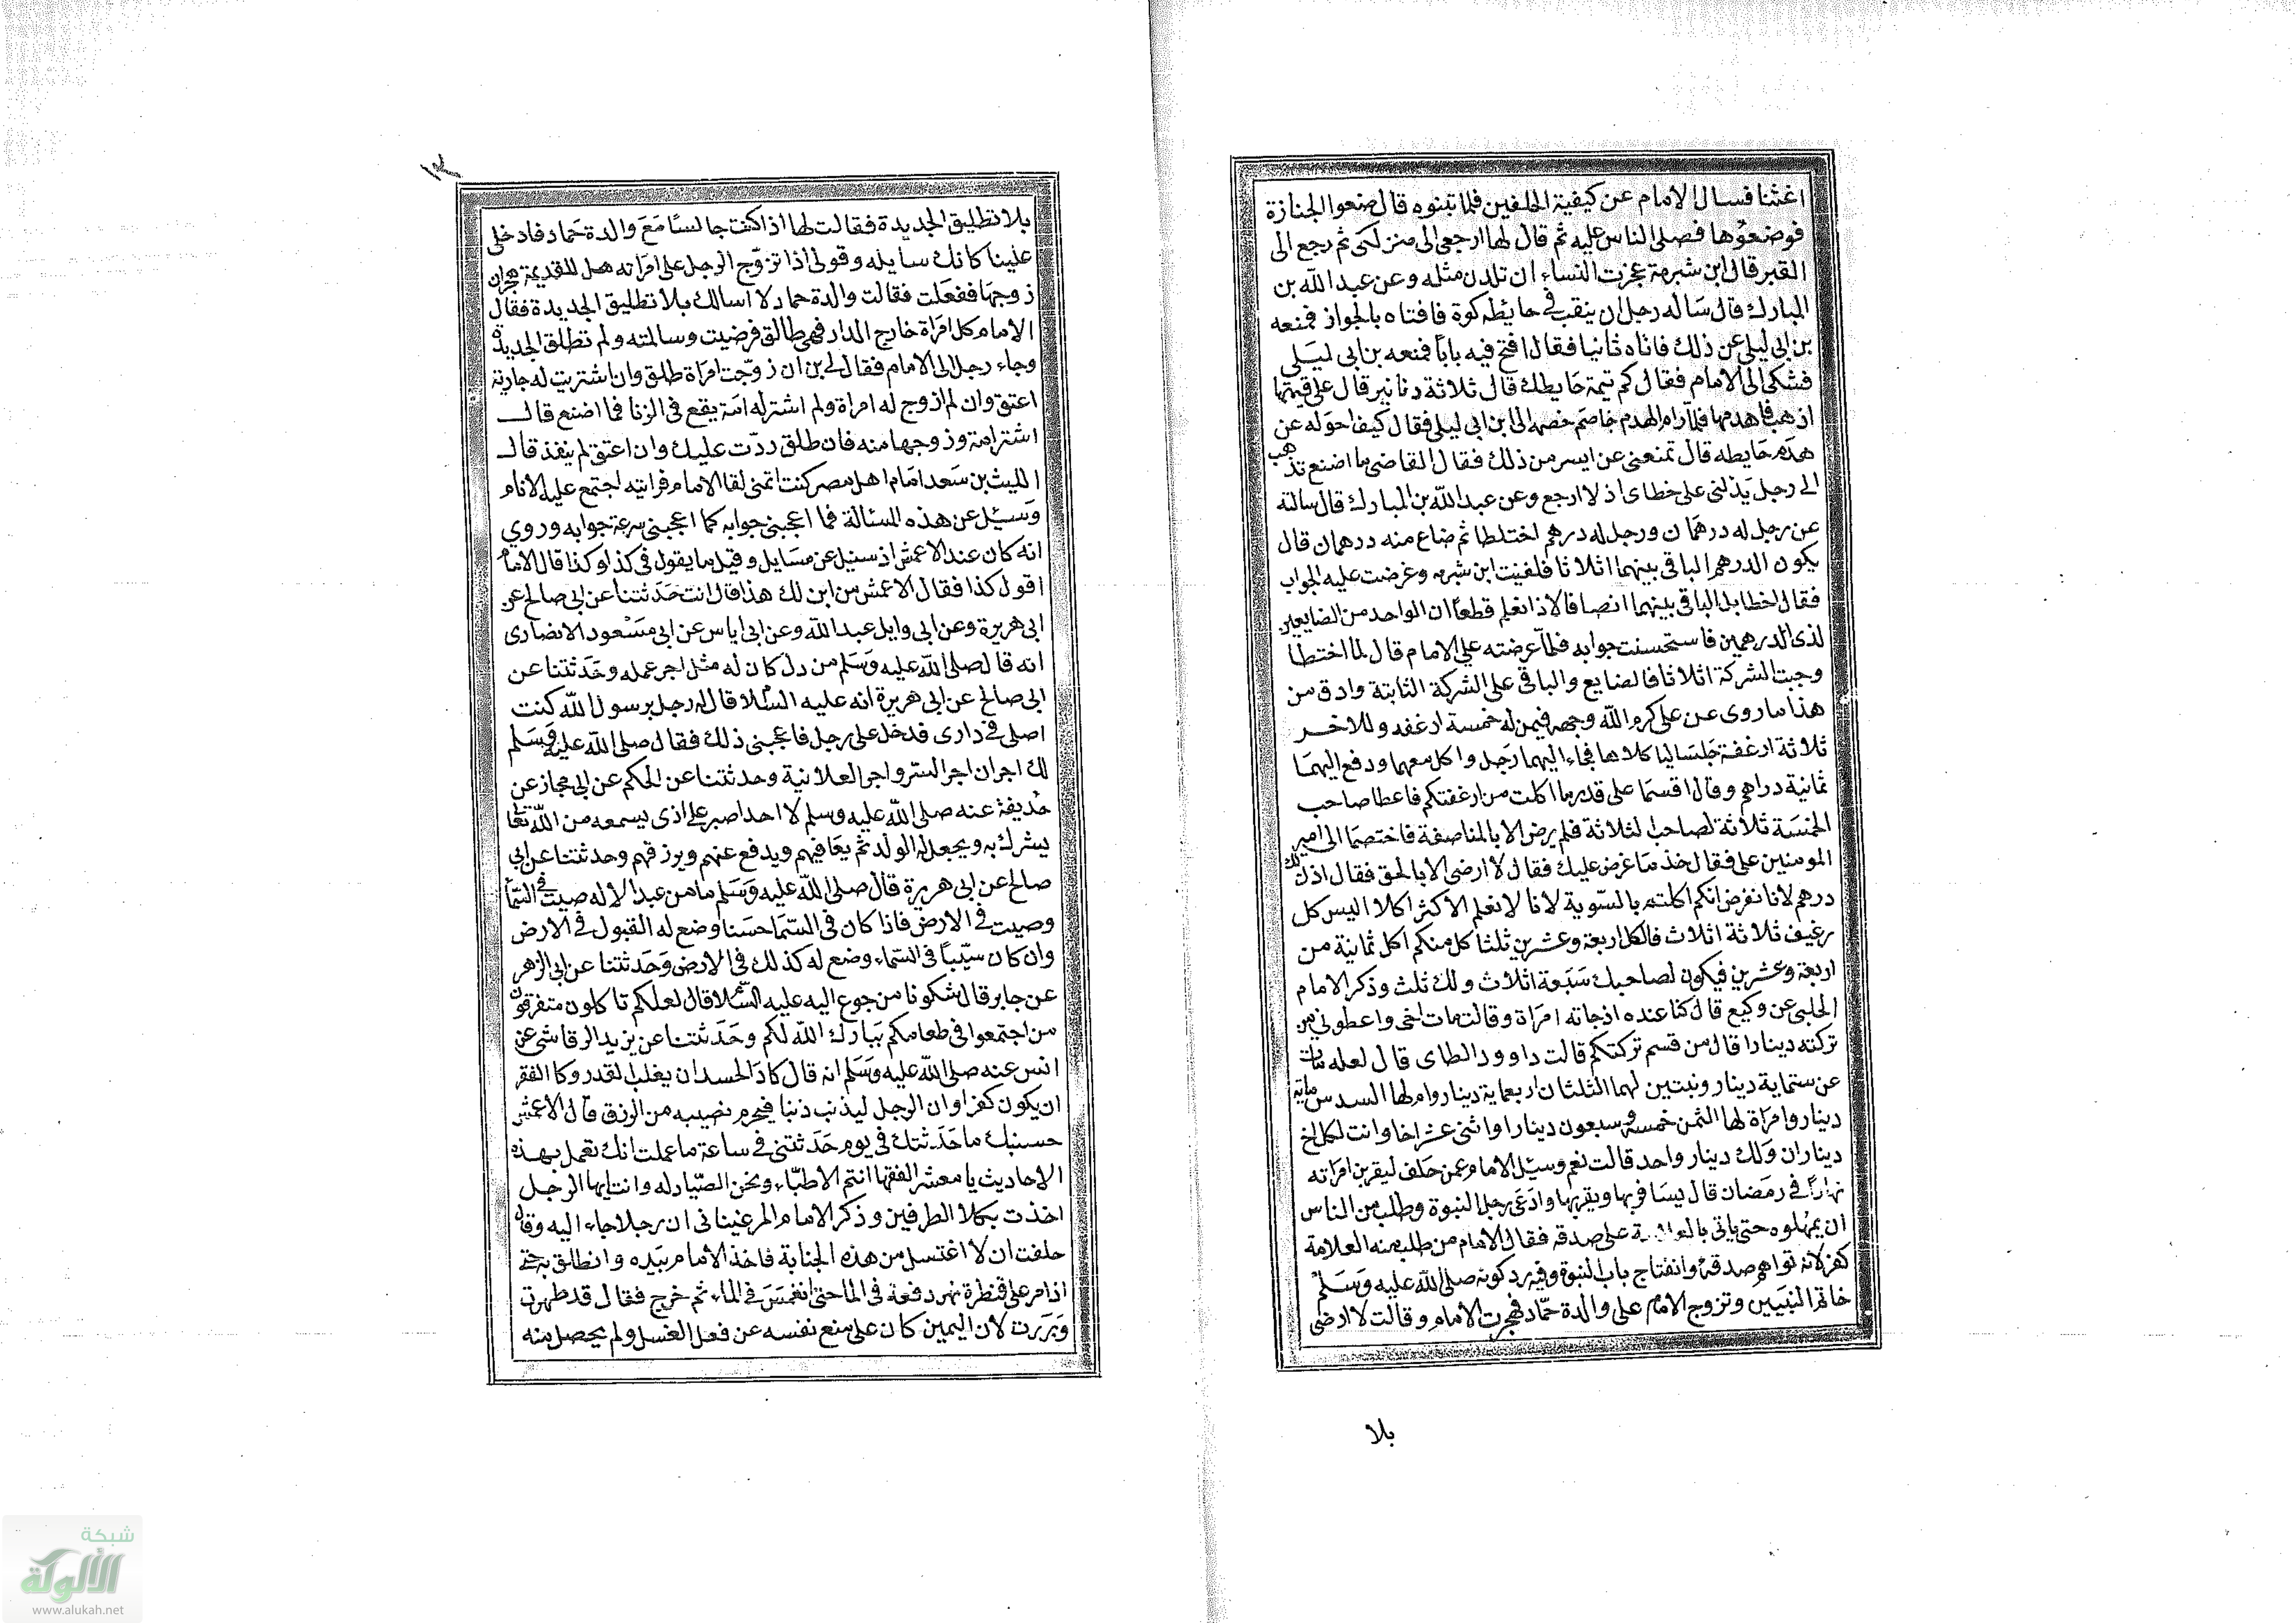 اغثنا فسال الامام عن كيفية الحلفين فلما تبنوه قال ضعوا الجنازة
فوضعوها فصلى الناس عليه ثم قال لها ارجعى الى منزلكى ثم رجع الى
القبر قال ابن شبرمة عجزت النساء ان تلدن مثله وعن عبد الله بن
المبارك قال ساله رجل ان ينقب فى حايطه كوة فافتاه بالجواز فمنعه
بن ابى ليلى عن ذلك فاتاه ثانيا فقال افتح فيه بابا فمنعه بن ابى ليلى
فشكى الى الامام فقال كم قيمة حايطك قال ثلاثة دنانير قال على قيمتها
اذهب فاهدمها فلما راه الهدم خاصم خصمه الى ابن ابى ليلى فقال كيف احوله عن
هدم حايطه قال تمنعنى عن ايسر من ذلك فقال القاضى ما اضنع تذهب
الى رجل يذلنى على خطاى اذ لا ارجع وعن عبد الله بن المبارك قال سالته
عن رجل له درهمان ورجل له درهم اختلطا ثم ضاع منه درهمان قال
يكون الدرهم الباقى بينهما اثلاثا فلقيت ابن شبرمه وعرضت عليه الجواب
فقال اخطا بل الباقى بينهما انصافا لاذا نعلم قطعا ان الواحد من الضايعين
لذى الدرهمين فاستحسنت جوابه فلما عرضته على الامام قال لما اختطا
وجبت الشركة اثلاثا فالضايع والباقى على الشركة الثابتة وادق من
هذا ما روى عن على كرم الله وجهه فيمن له خمسة ارغفه وللاخر
ثلاثة ارغفة جلسا لياكلاها فجاء اليهما رجل واكل معهما ودفع اليهما
ثمانية دراهم وقال اقسما على قدر ما اكلت من ارغفتكم فاعطا صاحب
الخمسة ثلاثة لصاحب الثلاثة فلم يرض الا بالمناصفة فاختصما الى امير
المومنين على فقال خذ ما عرض عليك فقال لا ارضى الا بالحق فقال اذن لك
درهم لانا نفرض انكم اكلتم بالسوية لانا لا نعلم الاكثر اكلا اليس كل
رغيف ثلاثة اثلاث فالكل اربعة وعشرين ثلثا كل منكم اكل ثمانية من
اربعة وعشرين فيكون لصاحبك سبعة اثلاث ولك ثلث وذكر الامام
الحلبى عن وكيع قال كنا عنده اذجاته امراة وقالت مات اخى واعطونى من
تركته دينارا قال من قسم تركتكم قالت داوود الطاى قال لعله مات
عن ستماية دينار وبنتين لهما الثلثان اربعماية دينار وام لها السدس ماية
دينار وامراة لها الثمن خمسة وسبعون دينارا واثنى عشر اخا وانت لكل اخ
ديناران ولك دينار واحد قالت نعم وسيل الامام عمن حلف ليقربن امراته
نهارا فى رمضان قال يسافر بها ويقربها وادعى رجل النبوة وطلب من الناس
ان يمهلوه حتى ياتى بالعلامة على صدقه فقال الامام من طلب منه العلامة
كفر لانه تواهم صدقه وانفتاح باب النبوة وفيه رد كونه صلى الله عليه وسلم
خاتم النبيين وتزوج الامام على والدة حماد فهجرت الامام وقالت لا ارضى
بلا
١٢
بلا تطليق الجديدة فقالت لها اذا كنت جالسا مع والدة حماد فادخلى
علينا كانك سايله وقولى اذا تزوج الرجل على امراته هل للقديمة هجران
زوجها ففعلت فقالت والدة حماد لا اسالك بلا تطليق الجديدة فقال
الامام كل امراة خارج الدار فهى طالق فرضيت وسالمته ولم تطلق الجديدة
وجاء رجل الى الامام فقال لى بن ان زوجت امراة طلق وان اشتريت له جارية
اعتق وان لم ازوج له امراة ولم اشتر له امة يقع فى الزنا فما اضنع قال
اشتر امة وزوجها منه فان طلق ردت عليك وان اعتق لم ينفذ قال
الليث بن سعد امام اهل مصر كنت اتمنى لقا الامام فرايته اجتمع عليه الانام
وسيل عن هذه المسالة فما اعجبنى جوابه كما اعجبنى سرعة جوابه وروي
انه كان عند الاعمش اذ سيل عن مسايل وقيل ما يقول فى كذا وكذا قال الامام
اقول كذا فقال الاعمش من اين لك هذا قال انت حدثتنا عن ابى صالح عن
ابى هريرة وعن ابى وايل عبد الله وعن ابى اياس عن ابى مسعود الانصارى
انه قال صلى الله عليه وسلم من دل كان له مثل اجر عمله وحدثتنا عن
ابى صالح عن ابى هريرة انه عليه السلام قال له رجل يرسول الله كنت
اصلى فى دارى فدخل على رجل فاعجبنى ذلك فقال صلى الله عليه وسلم
لك اجران اجر السر واجر العلانية وحدثتنا عن الحكم عن ابى مجاز عن
حذيفة عنه صلى الله عليه وسلم لا احد اصبر على اذى يسمعه من الله تعالى
يشرك به ويجعل له الولد ثم يعافيهم ويدفع عنهم ويرزقهم وحدثتنا عن ابى
صالح عن ابى هريرة قال صلى الله عليه وسلم ما من عبد الا له صيت فى السما
وصيت فى الارض فاذا كان فى السما حسنا وضع له القبول فى الارض
وان كان سيبا فى السماء وضع له كذلك فى الارض وحدثتنا عن ابى الزهر
عن جابر قال شكونا من جوع اليه عليه السلام قال لعلكم تاكلون متفرقون
من اجتمعوا فى طعامكم يبارك الله لكم وحدثتنا عن يزيد الرقاشى عن
انس عنه صلى الله عليه وسلم انه قال كاد الحسد ان يغلب القدر وكا الفقر
ان يكون كفرا وان الرجل ليذنب ذنبا فيحرم نصيبه من الرزق قال الاعمش
حسبك ما حدثتك فى يوم حدثتنى فى ساعة ما عملت انك تعمل بهذه
الاحاديث يا معشر الفقها انتم الاطباء ونحن الصيادله وانت ايها الرجل
اخذت بكلا الطرفين وذكر الامام المرغينانى ان رجلا جاء اليه وقال
حلفت ان لا اغتسل من هذه الجنابة فاخذ الامام بيده وانطلق به حتى
اذا مر على قنطرة نهر دفعه فى الماحتى انغمس فى الماء ثم خرج فقال قد طهرت
وبررت لان اليمين كان على منع نفسه عن فعل الغسل ولم يحصل منه
شبكة
الألوكة
www.alukah.net